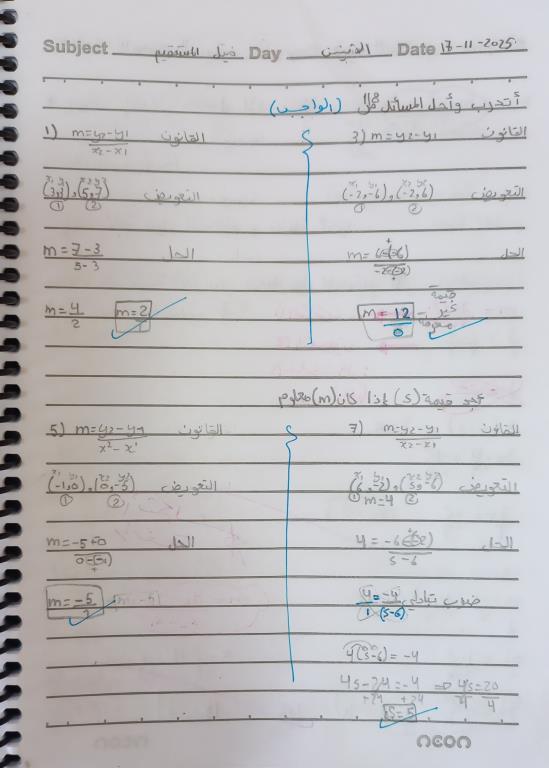 Subject ميل المستقيم Day الاثنين Date 17-11-2025
أتدرب وأحل المسائل (الواجب)
1) m = y2-y1 / x2-x1 القانون
(3,3), (5,7) التعويض
① ②
m = 7-3 / 5-3 الحل
m = 4/2 m=2
3) m = y2-y1 القانون
(-2,-6), (-2,6) التعويض
① ②
m = 6-(-6) / -2-(-2) الحل
m = 12/0 قيمة غير معرفة
نجد قيمة (s) إذا كان (m) معلوم
5) m = y2-y1 / x2-x1 القانون
(-1,0), (0,-5) التعويض
① ②
m = -5-0 / 0-(-1) الحل
7) m = y2-y1 / x2-x1 القانون
(6,-2), (s,-6) التعويض
① m=4 ②
4 = -6-(-2) / s-6 الحل
4/1 = -4/(s-6) ضرب تبادلي
4(s-6) = -4
4s-24 = -4 ⇒ 4s/4 = 20/4
+24 +24
s=5
neon